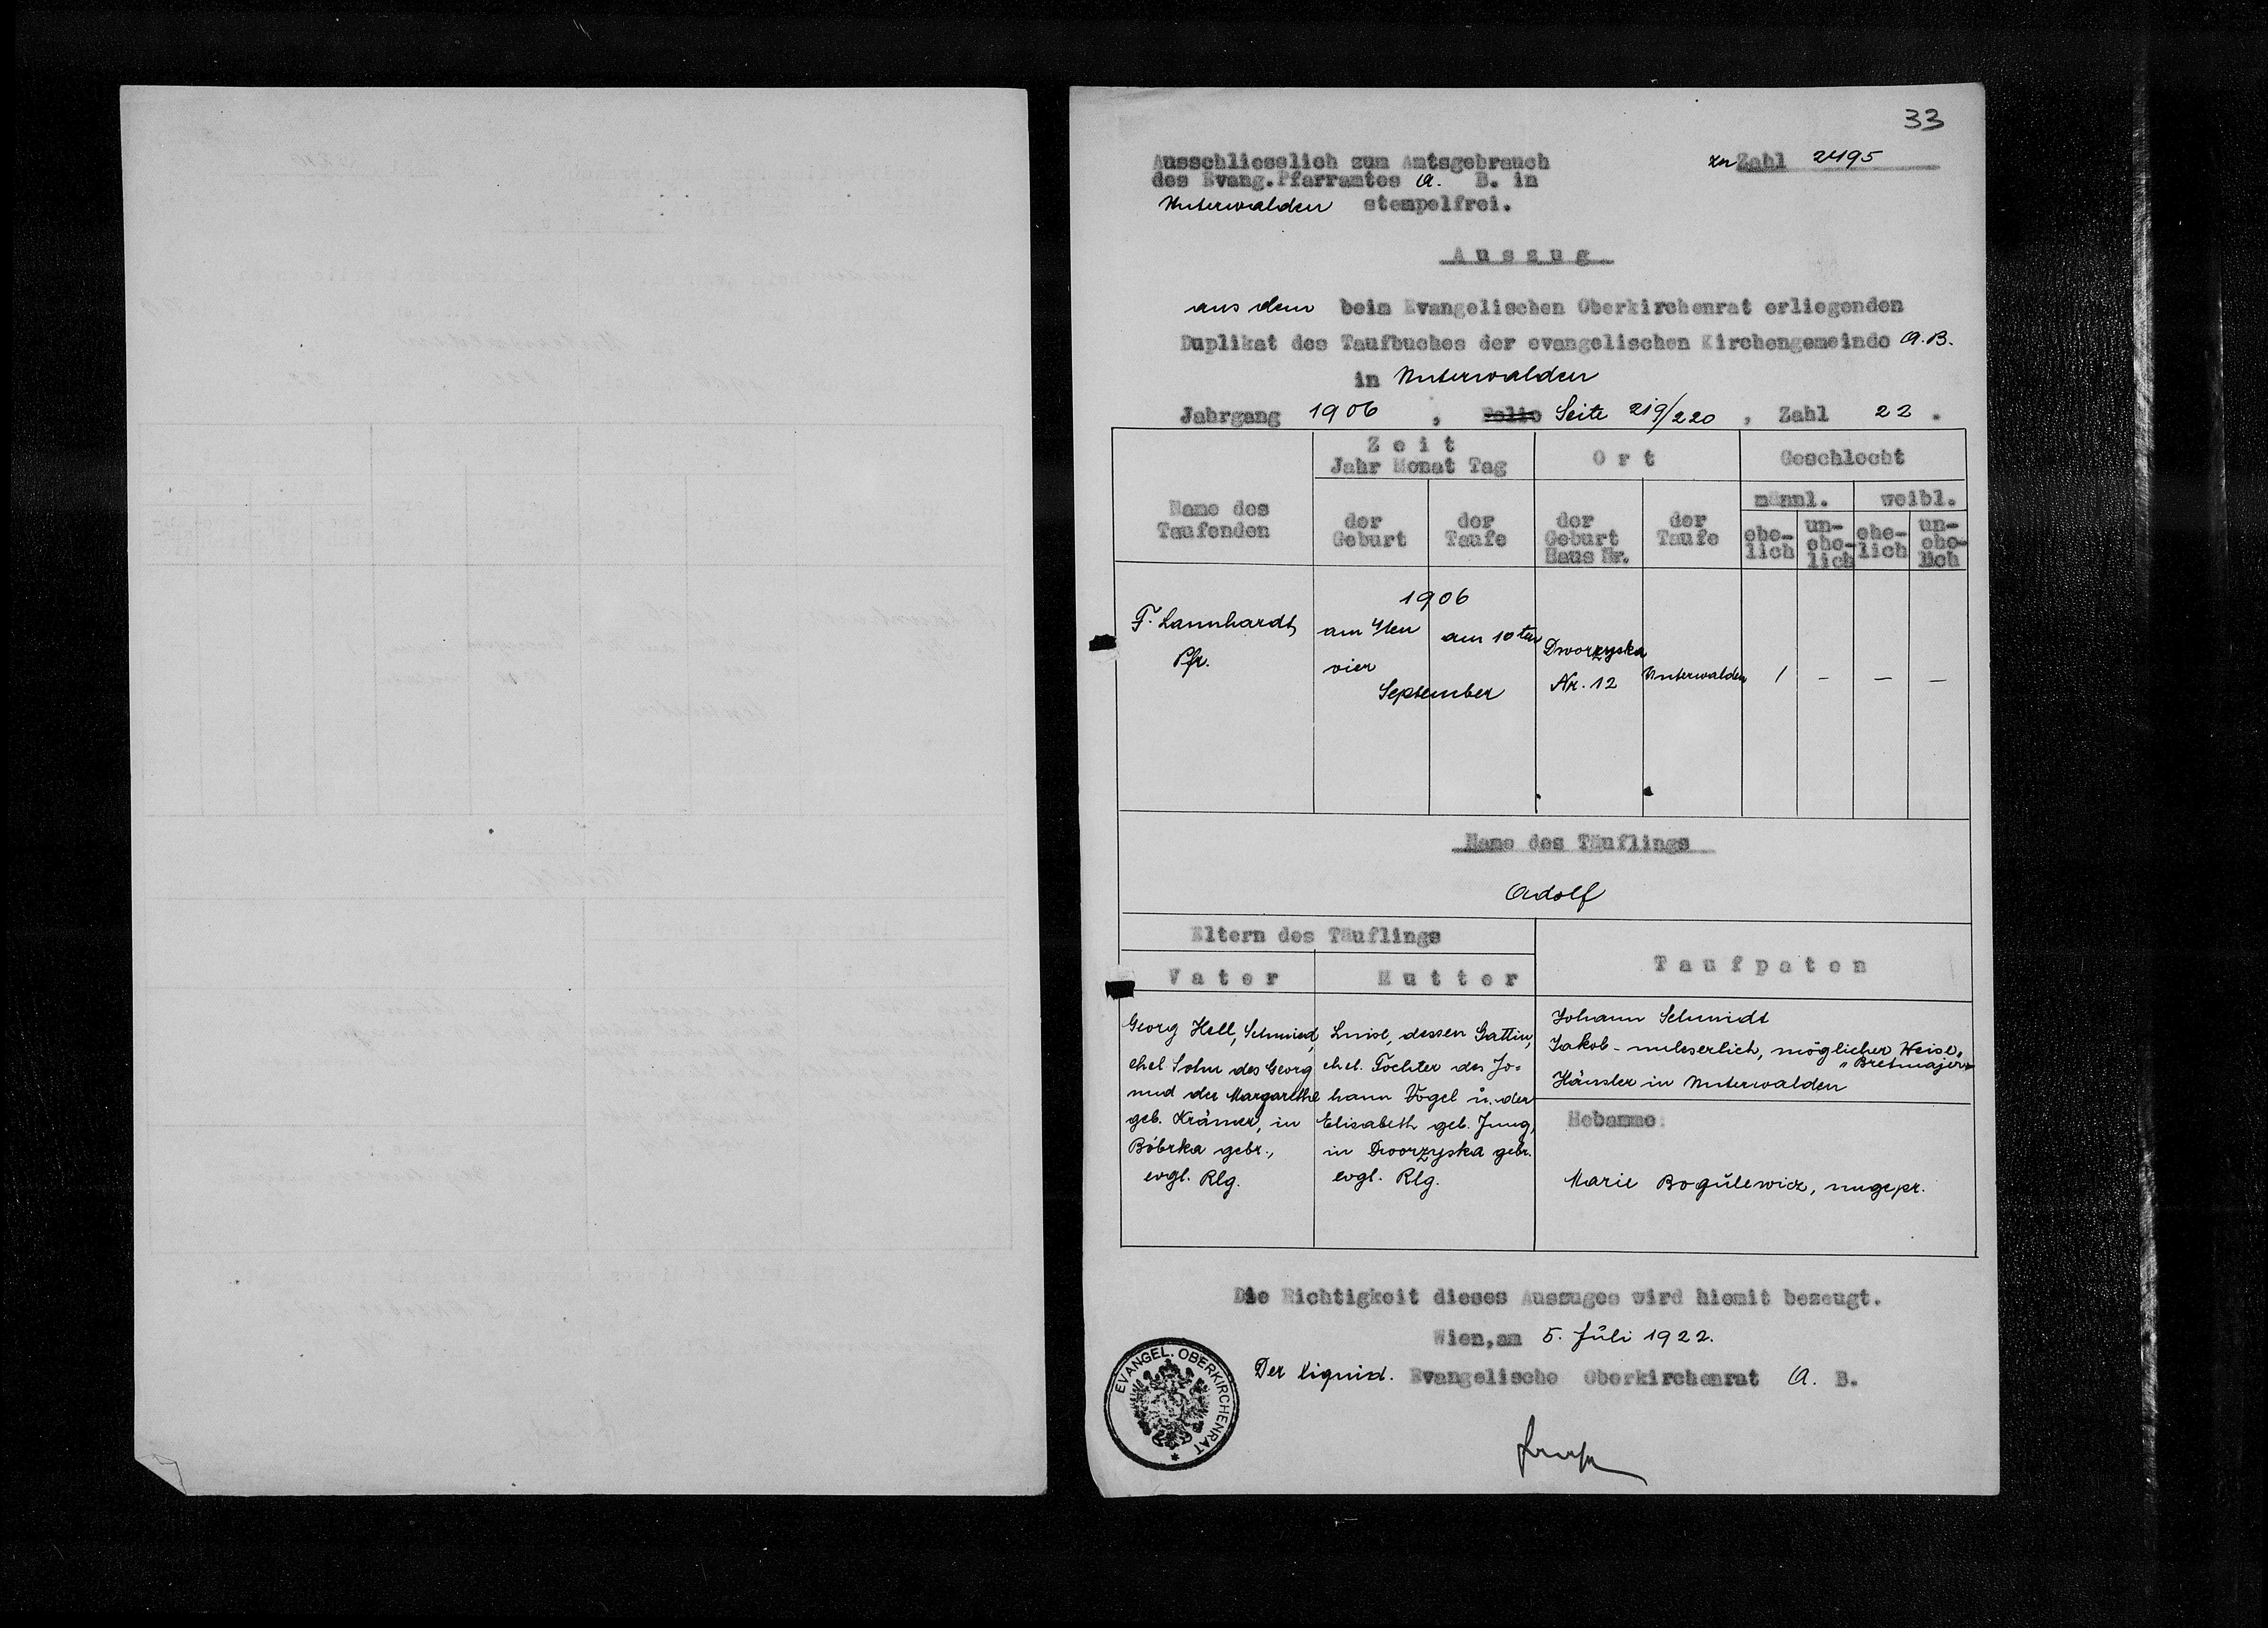 33
Ausschliesslich zum Amtsgebrauch
des Evang.Pfarramtes A. B. in
Unterwalden stempelfrei.
zu Zahl 2495
Auszug
aus dem beim Evangelischen Oberkirchenrat erliegenden
Duplikat des Taufbuches der evangelischen Kirchengemeinde A.B.
in Unterwalden
Jahrgang 1906 , Folio Seite 219/220 , Zahl 22 .
Name des
Taufenden
Zeit
Jahr Monat Tag
der
Geburt
der
Taufe
Ort
der
Geburt
Haus Nr.
der
Taufe
Geschlecht
männl.
weibl.
ehe-
lich
un-
ehe-
lich
ehe-
lich
un-
ehe-
lich
F. Lannhardt,
Pfr.
1906
am 4ten
vier
am 10ten
September
Dworzyska
Nr. 12
Unterwalden
1 – – –
Name des Täuflings
Adolf
Eltern des Täuflings
Vater
Mutter
Taufpaten
Georg Hell, Schmied,
ehel. Sohn des Georg
und der Margarethe
geb. Krämer, in
Bóbrka gebr.,
evgl. Rlg.
Luise, dessen Gattin,
ehel. Tochter des Jo=
hann Vogel u. der
Elisabeth geb. Jung,
in Dworzyska gebr.
evgl. Rlg.
Johann Schmidt
Jakob - unleserlich, möglicher Weise,
"Bretmajer"
Häusler in Unterwalden
Hebamme:
Marie Bogulewicz, ungepr.
Die Richtigkeit dieses Auszuges wird hiemit bezeugt.
Wien,am 5. Juli 1922.
Der liquid. Evangelische Oberkirchenrat A. B.
EVANGEL. OBERKIRCHENRAT *